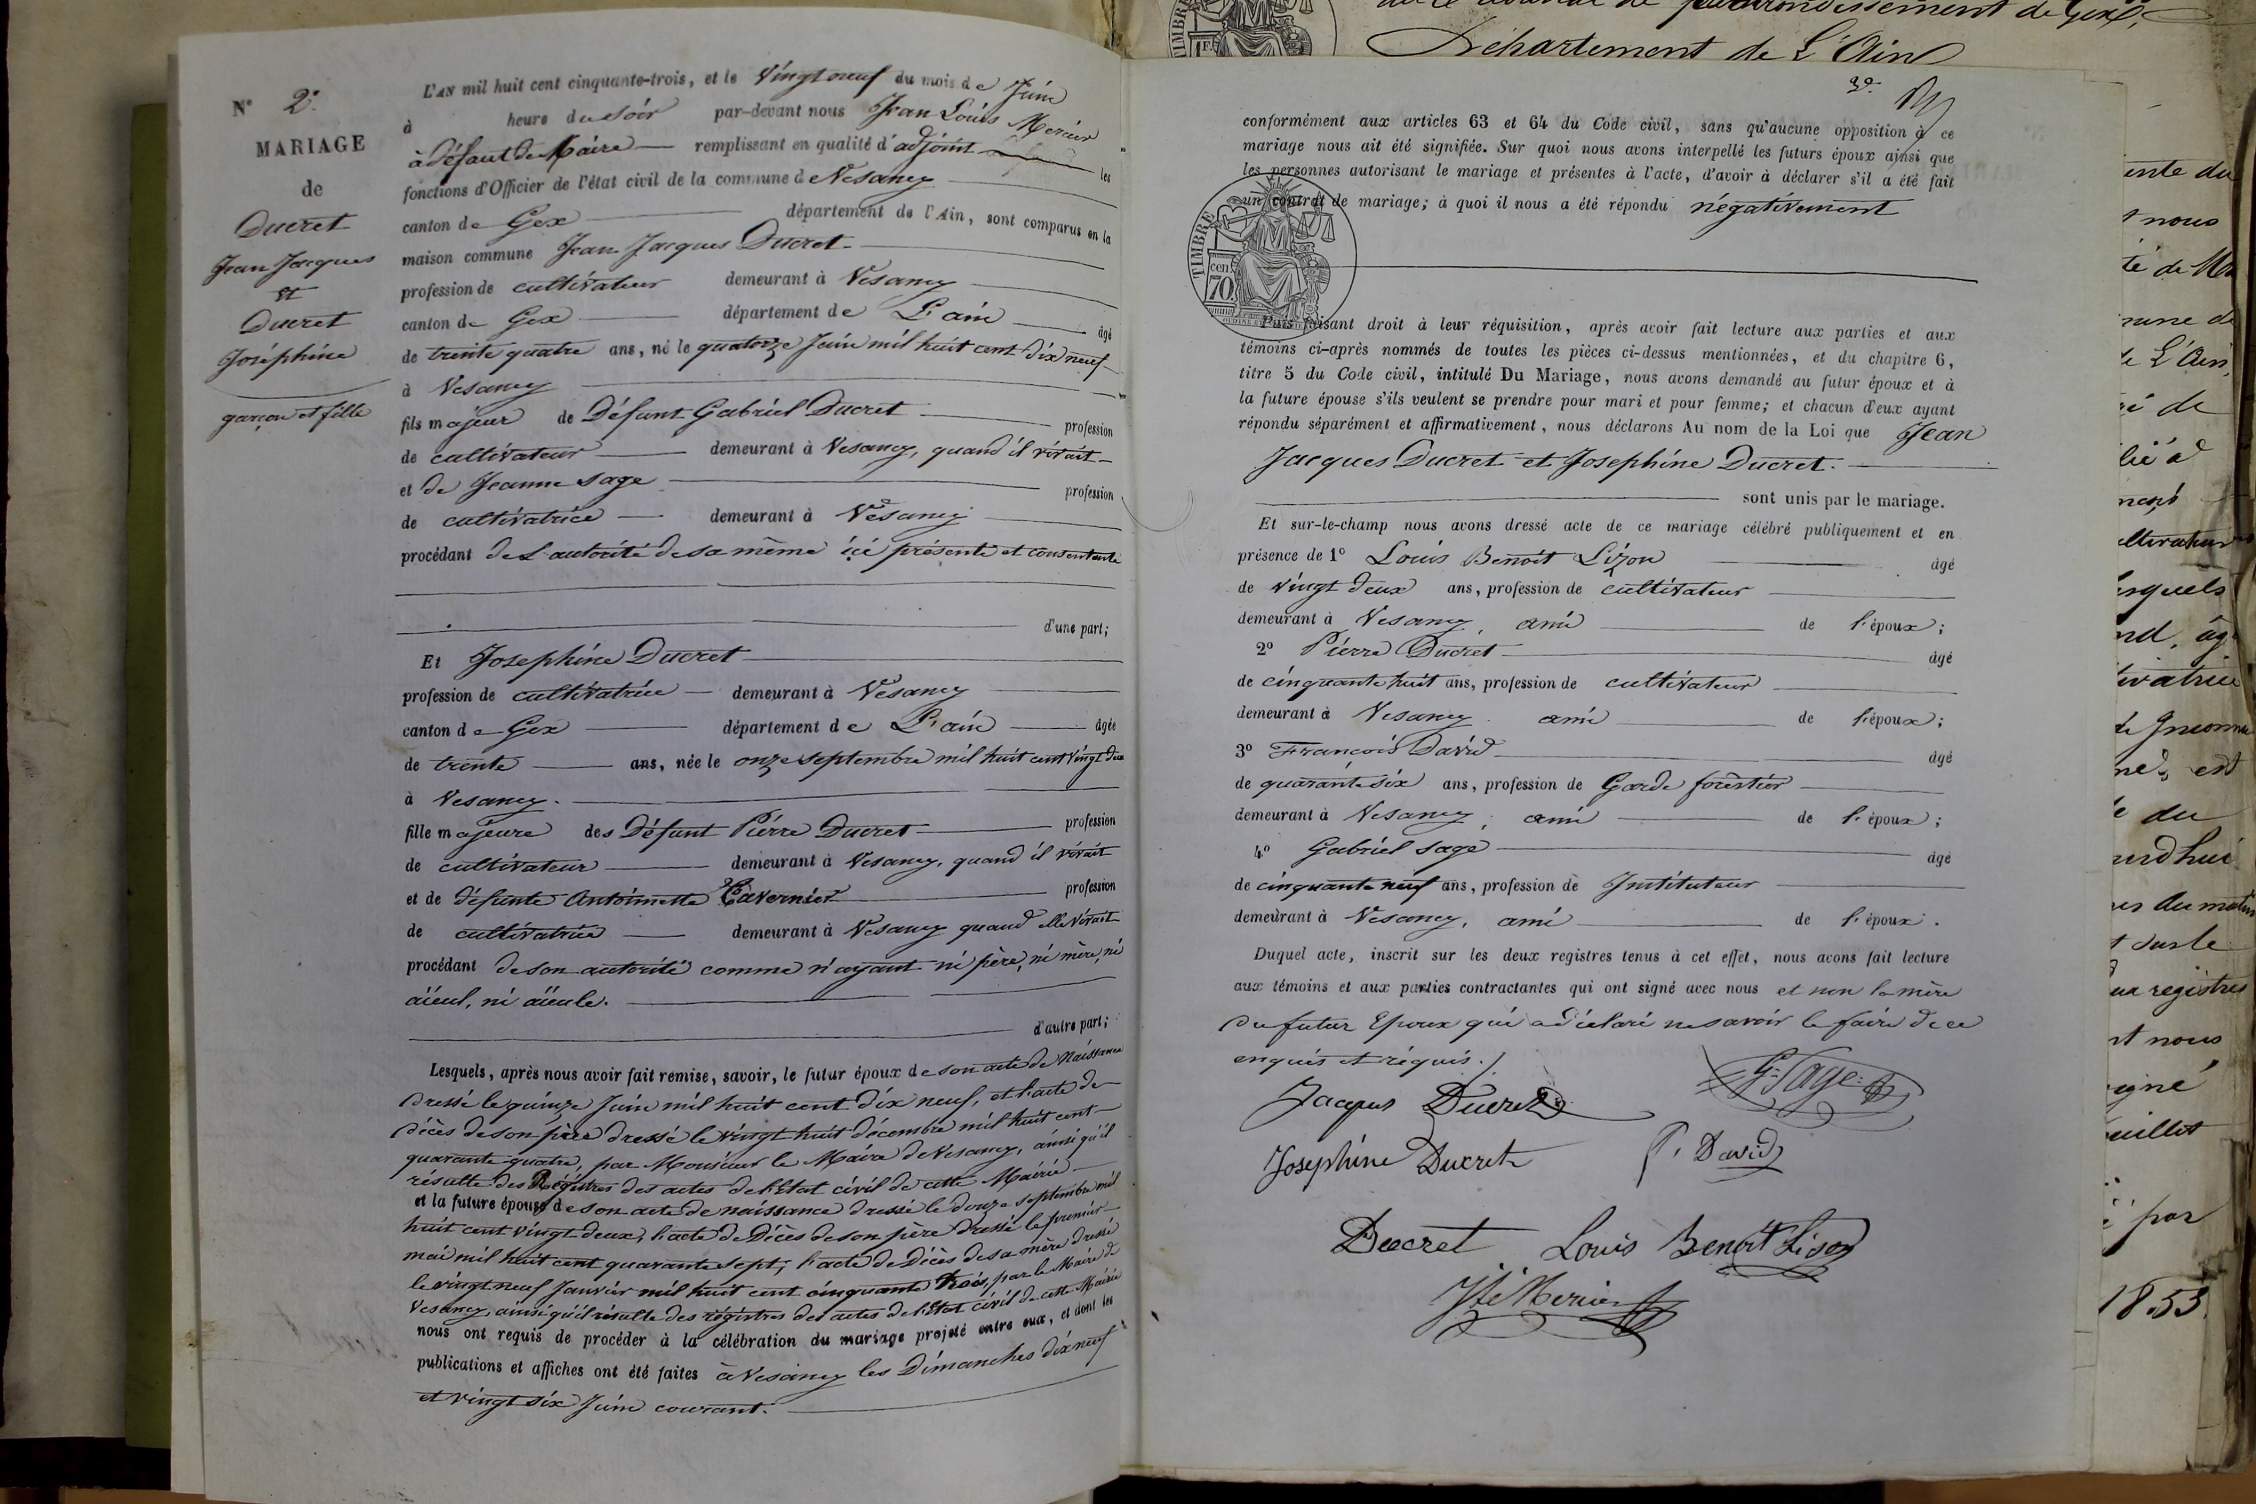 N° 2e.
MARIAGE
de
Ducret
Jean Jacques
et
Ducret
Joséphine
garçon et fille
L'AN mil huit cent cinquante-trois, et le Vingt neuf du mois de Juin
à heure du soir par-devant nous Jean Louis Mercier
à défaut de Maire remplissant en qualité d'adjoint les
fonctions d'Officier de l'état civil de la commune de Vesancy
canton de Gex département de l'Ain, sont comparus en la
maison commune Jean Jacques Ducret
profession de cultivateur demeurant à Vesancy
canton de Gex département de L'ain âgé
de trente quatre ans, né le quatorze Juin mil huit cent dix neuf
à Vesancy
fils majeur de Défunt Gabriel Ducret profession
de cultivateur demeurant à Vesancy, quand il vivait
et de Jeanne Sage profession
de cultivatrice demeurant à Vesancy
procédant de L'autorité de sa mème ici présente et consentante
d'une part;
Et Josephine Ducret
profession de cultivatrice demeurant à Vesancy
canton de Gex département de L'ain âgée
de trente ans, née le onze septembre mil huit cent vingt deux
à Vesancy.
fille majeure des Défunt Pierre Ducret profession
de cultivateur demeurant à Vesancy, quand il vivait
et de défunte Antoinette Tavernier profession
de cultivatrice demeurant à Vesancy quand elle vivait
procédant de son autorité comme n'ayant ni père, ni mère, ni
aïeul, ni aïeule.
d'autre part;
Lesquels, après nous avoir fait remise, savoir, le futur époux de son acte de Naissance
dressé le quinze Juin mil huit cent dix neuf, et l'acte de
décès de son père dressé le vingt huit décembre mil huit cent
quarante quatre, par Monsieur le Maire de Vesancy, ainsi qu'il
résulte des Registres des actes de l'Etat civil de cette Mairie
et la future épouse de son acte de naissance dressé le douze septembre mil
huit cent vingt deux, l'acte de Décès de son père dressé le premier
mai mil huit cent quarante sept, l'acte de Décès de sa mère dressé
le vingt neuf Janvier mil huit cent cinquante trois, par le Maire de
Vesancy, ainsi qu'il résulte des régistres des actes de l'Etat civil de cette Mairie
nous ont requis de procéder à la célébration du mariage projeté entre eux, et dont les
publications et affiches ont été faites à Vesancy les Dimanches dix neuf
et vingt six Juin courant.
conformément aux articles 63 et 64 du Code civil, sans qu'aucune opposition à ce
mariage nous ait été signifiée. Sur quoi nous avons interpellé les futurs époux ainsi que
les personnes autorisant le mariage et présentes à l'acte, d'avoir à déclarer s'il a été fait
un contrat de mariage; à quoi il nous a été répondu négativement
TIMBRE
cen
70
Puis faisant droit à leur réquisition, après avoir fait lecture aux parties et aux
témoins ci-après nommés de toutes les pièces ci-dessus mentionnées, et du chapitre 6,
titre 5 du Code civil, intitulé Du Mariage, nous avons demandé au futur époux et à
la future épouse s'ils veulent se prendre pour mari et pour femme; et chacun d'eux ayant
répondu séparément et affirmativement, nous déclarons Au nom de la Loi que Jean
Jacques Ducret et Josephine Ducret.
sont unis par le mariage.
Et sur-le-champ nous avons dressé acte de ce mariage célébré publiquement et en
présence de 1° Louis Benoît Lizon âgé
de vingt deux ans, profession de cultivateur
demeurant à Vesancy, ami de l'époux;
2° Pierre Ducret âgé
de cinquante huit ans, profession de cultivateur
demeurant à Vesancy ami de l'époux;
3° François David âgé
de quarante six ans, profession de Garde forestier
demeurant à Vesancy, ami de l'époux;
4° Gabriel Sage âgé
de cinquante neuf ans, profession de Instituteur
demeurant à Vesancy, ami de l'époux.
Duquel acte, inscrit sur les deux registres tenus à cet effet, nous avons fait lecture
aux témoins et aux parties contractantes qui ont signé avec nous et non la mère
du futur Epoux qui a déclaré ne savoir le faire de ce
enquis et réquis.
Jacques Ducret G. Sage
Josephine Ducret f. David
Ducret Louis Benoît Lison
Jn Ls Mercier
Département de L'Ain
1853.